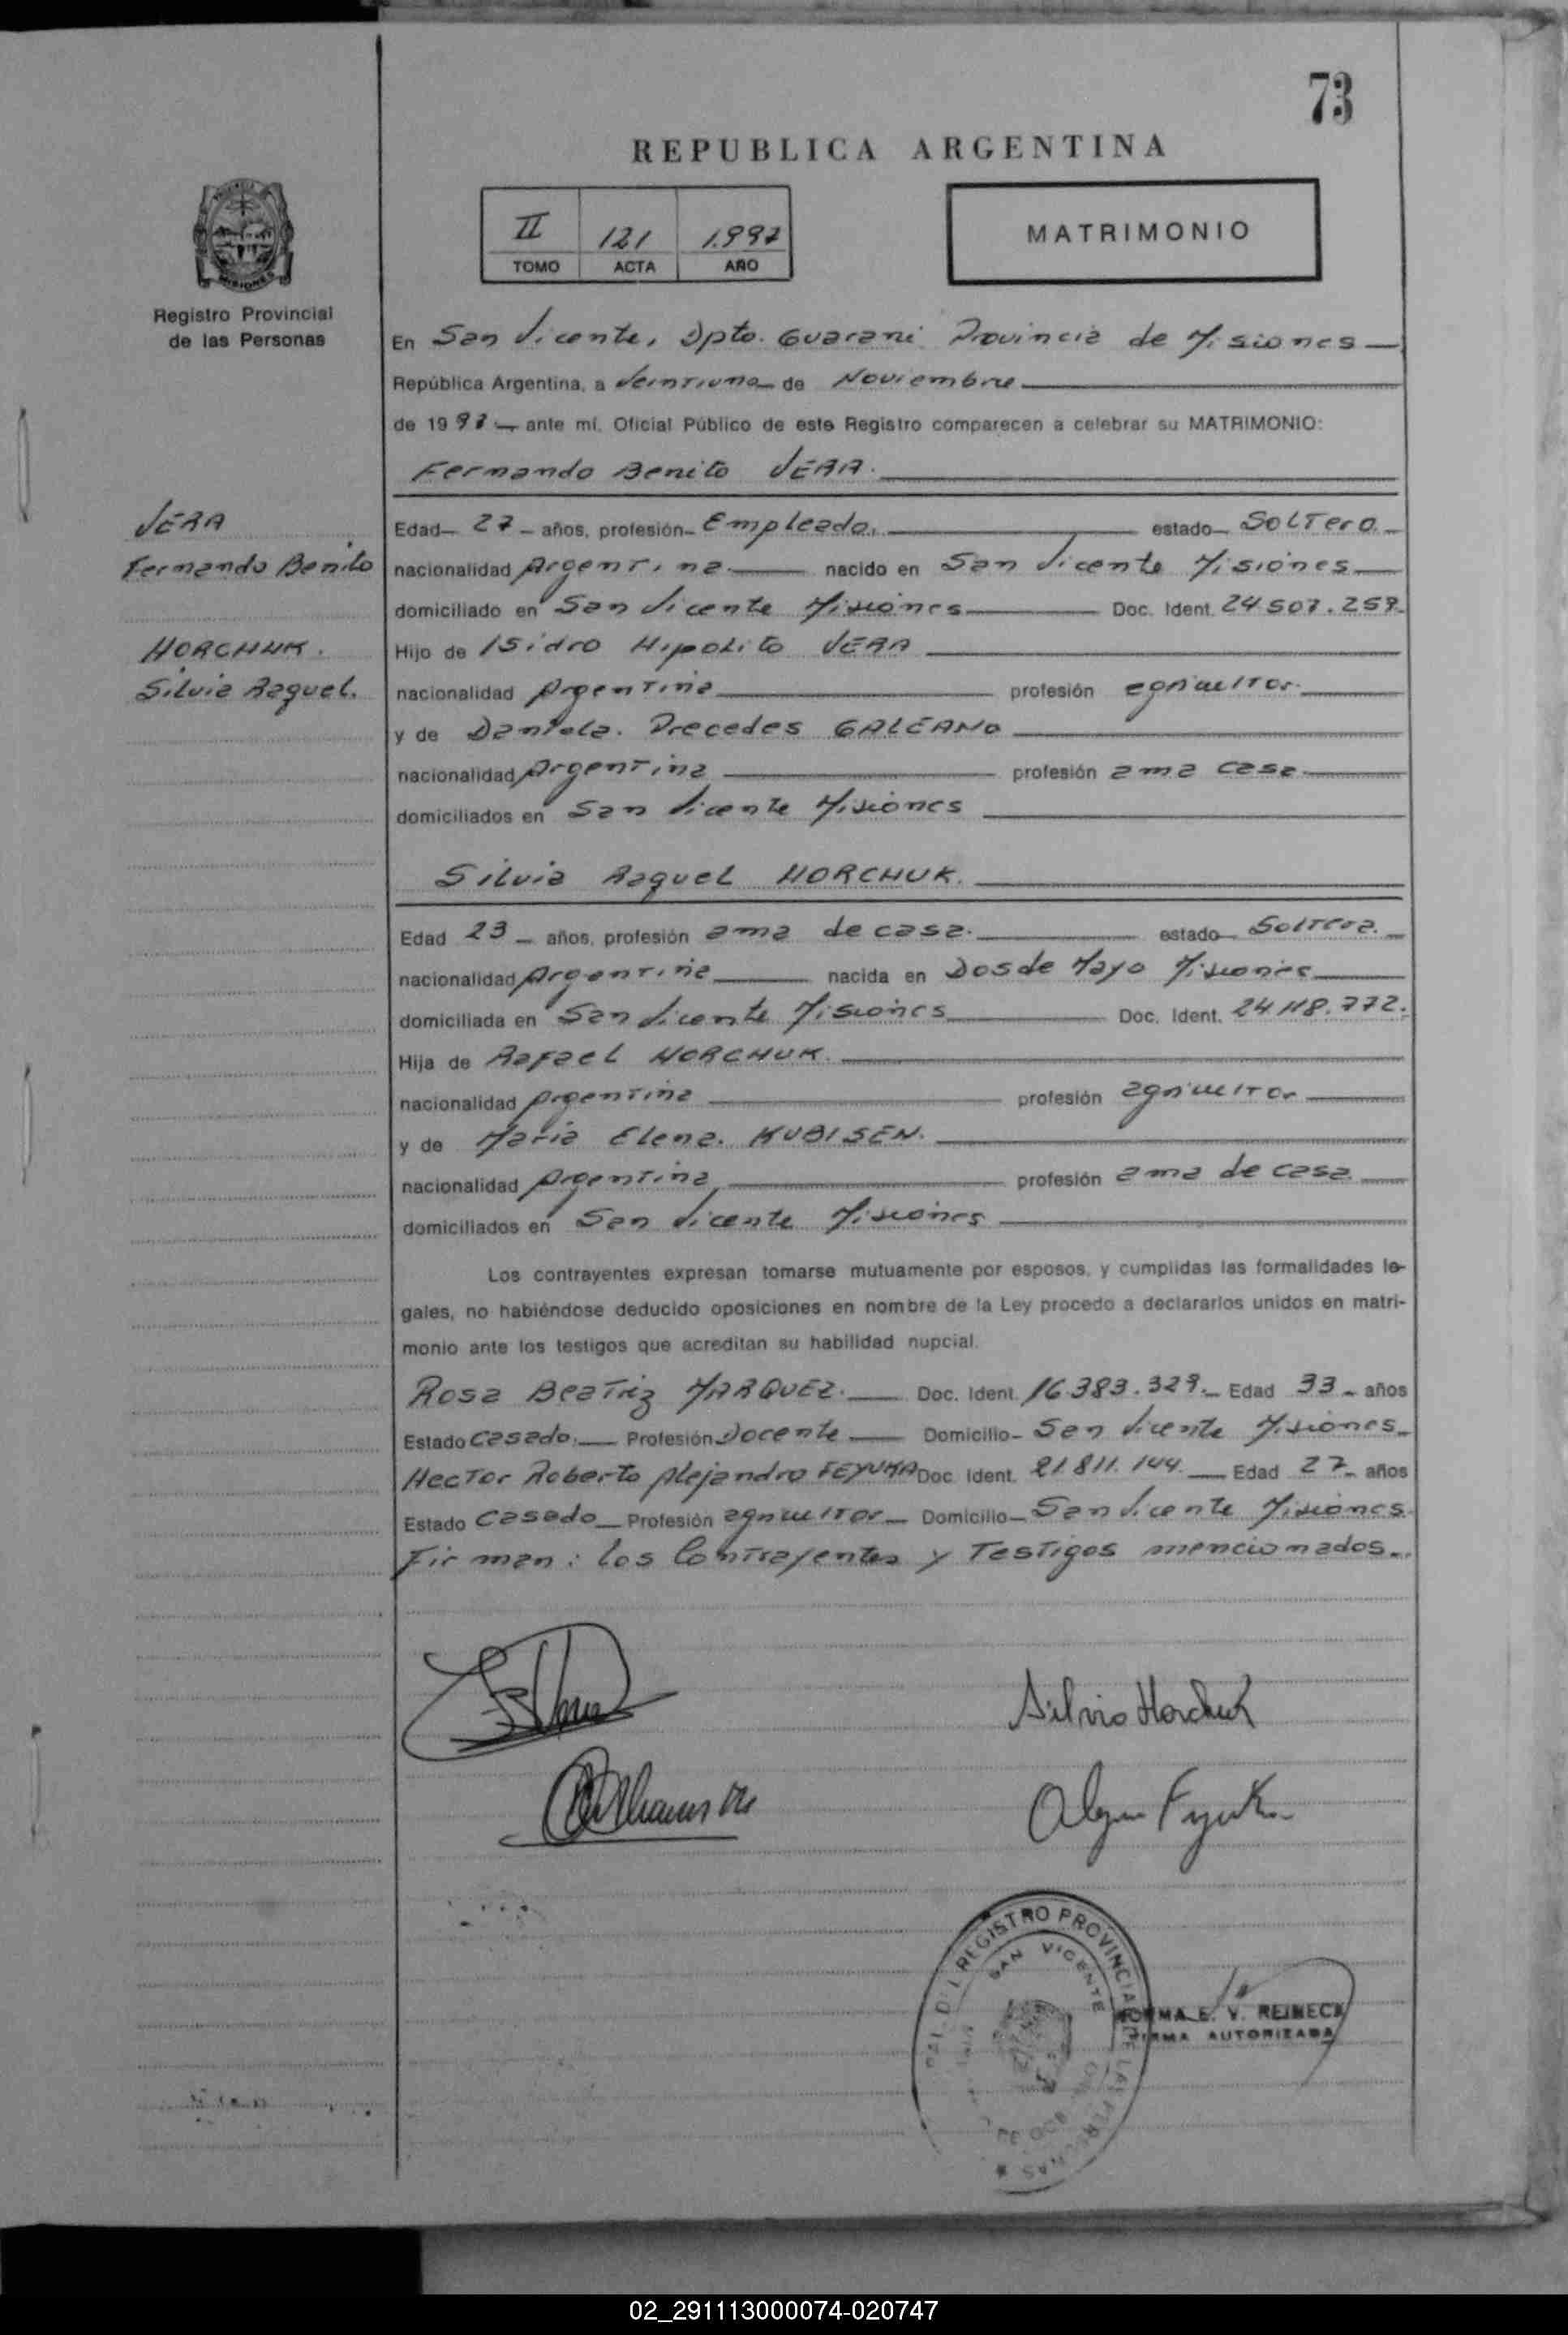 73
REPUBLICA ARGENTINA
II 121 1.997
TOMO ACTA AÑO
MATRIMONIO
MISIONES
Registro Provincial
de las Personas
En San Vicente, Dpto. Guarani Provincia de Misiones
República Argentina, a Veintiuno de Noviembre
de 1997 ante mí. Oficial Público de este Registro comparecen a celebrar su MATRIMONIO:
Fernando Benito VERA.
VERA
Fernando Benito
HORCHUK.
Silvia Raquel.
Edad 27 años, profesión Empleado. estado Soltero.
nacionalidad Argentina nacido en San Vicente Misiones
domiciliado en San Vicente Misiones Doc. Ident. 24.507.259
Hijo de Isidro Hipolito VERA
nacionalidad Argentina profesión agricultor.
y de Precedes GALEANO
nacionalidad Argentina profesión ama casa
domiciliados en San Vicente Misiones
Silvia Raquel HORCHUK.
Edad 23 años, profesión ama de casa. estado Soltera.
nacionalidad Argentina nacida en Dos de Mayo Misiones
domiciliada en San Vicente Misiones Doc. Ident. 24.118.772.
Hija de Rafael HORCHUK.
nacionalidad Argentina profesión agricultor
y de Maria Elena. KUBISEN.
nacionalidad Argentina profesión ama de casa
domiciliados en San Vicente Misiones
Los contrayentes expresan tomarse mutuamente por esposos, y cumplidas las formalidades le-
gales, no habiéndose deducido oposiciones en nombre de la Ley procedo a declararlos unidos en matri-
monio ante los testigos que acreditan su habilidad nupcial.
Rosa Beatriz MARQUEZ. Doc. Ident. 16.383.329. Edad 33 años
Estado Casado. Profesión Docente Domicilio San Vicente Misiones
Hector Roberto Alejandro FEYUKA Doc. Ident. 21.811.144. Edad 27 años
Estado Casado Profesión agricultor Domicilio San Vicente Misiones
Firman: los Contrayentes y Testigos mencionados.
Silvia Horchuk
REGISTRO PROVINCIAL DE LAS PERSONAS
SAN VICENTE
NORMA E. V. REINECK
FIRMA AUTORIZADA
02_291113000074-020747